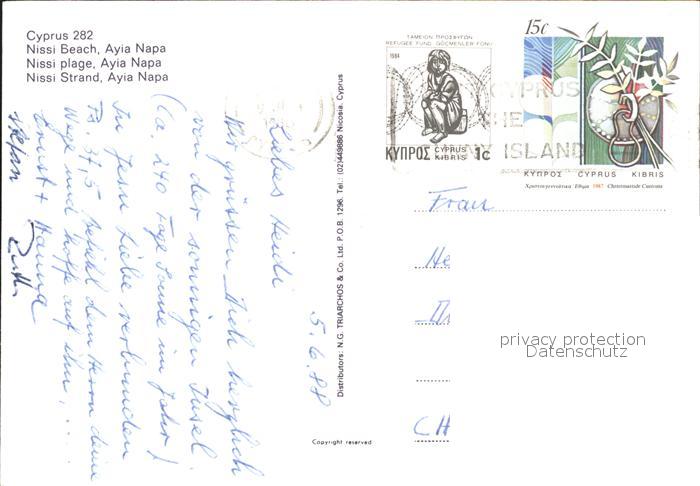 Cyprus 282
Nissi Beach, Ayia Napa
Nissi plage, Ayia Napa
Nissi Strand, Ayia Napa
ΤΑΜΕΙΟΝ ΠΡΟΣΦΥΓΩΝ
REFUGEE FUND GÖÇMENLER FONU
1984
ΚΥΠΡΟΣ CYPRUS KIBRIS 1c
15c
ΚΥΠΡΟΣ CYPRUS KIBRIS
Χριστουγεννιάτικα Έθιμα 1987 Christmastide Customs
CYPRUS
THE
ISLAND
5.6.88
Liebes Heidi
Wir grüssen Dich herzlich
von der sonnigen Insel
(Ca. 240 Tage Sonne im Jahr!)
In Jesu Liebe verbunden
Ps. 37,5 Befiehl dem Herrn deine
Wege und hoffe auf ihn, ...
Ernst + Hanna
Stefan Ruth
Distributors: N.G. TRIARCHOS & Co. Ltd. P.O.B. 1296. Tel.: (02)449886 Nicosia, Cyprus
Copyright reserved
Frau
He
CH
privacy protection
Datenschutz